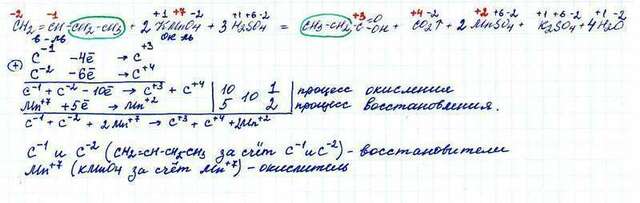 -2 -1 +1 +7 -2 +1 +6 -2 +3 +4 +2 +6 -2 +1 +6 -2 +1 -2
CH2=CH-CH2-CH3 + 2 KMnO4 + 3 H2SO4 = CH3-CH2-C=O-OH + CO2↑ + 2 MnSO4 + K2SO4 + 4H2O
в-ль ок-ль
C⁻¹ -4ē → C⁺³
+ C⁻² -6ē → C⁺⁴
C⁻¹ + C⁻² -10ē → C⁺³ + C⁺⁴ | 10 | 10 | 1 | процесс окисления
Mn⁺⁷ +5ē → Mn⁺² | 5 | 2 | процесс восстановления.
C⁻¹ + C⁻² + 2Mn⁺⁷ → C⁺³ + C⁺⁴ + 2Mn⁺²
C⁻¹ и C⁻² (CH2=CH-CH2CH3 за счёт C⁻¹ и C⁻²) - восстановители
Mn⁺⁷ (KMnO4 за счёт Mn⁺⁷) - окислитель